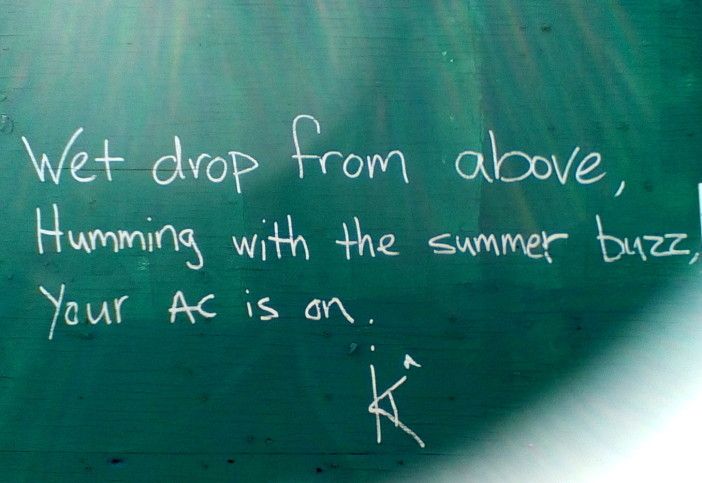 Wet drop from above,
Humming with the summer buzz,
Your AC is on.